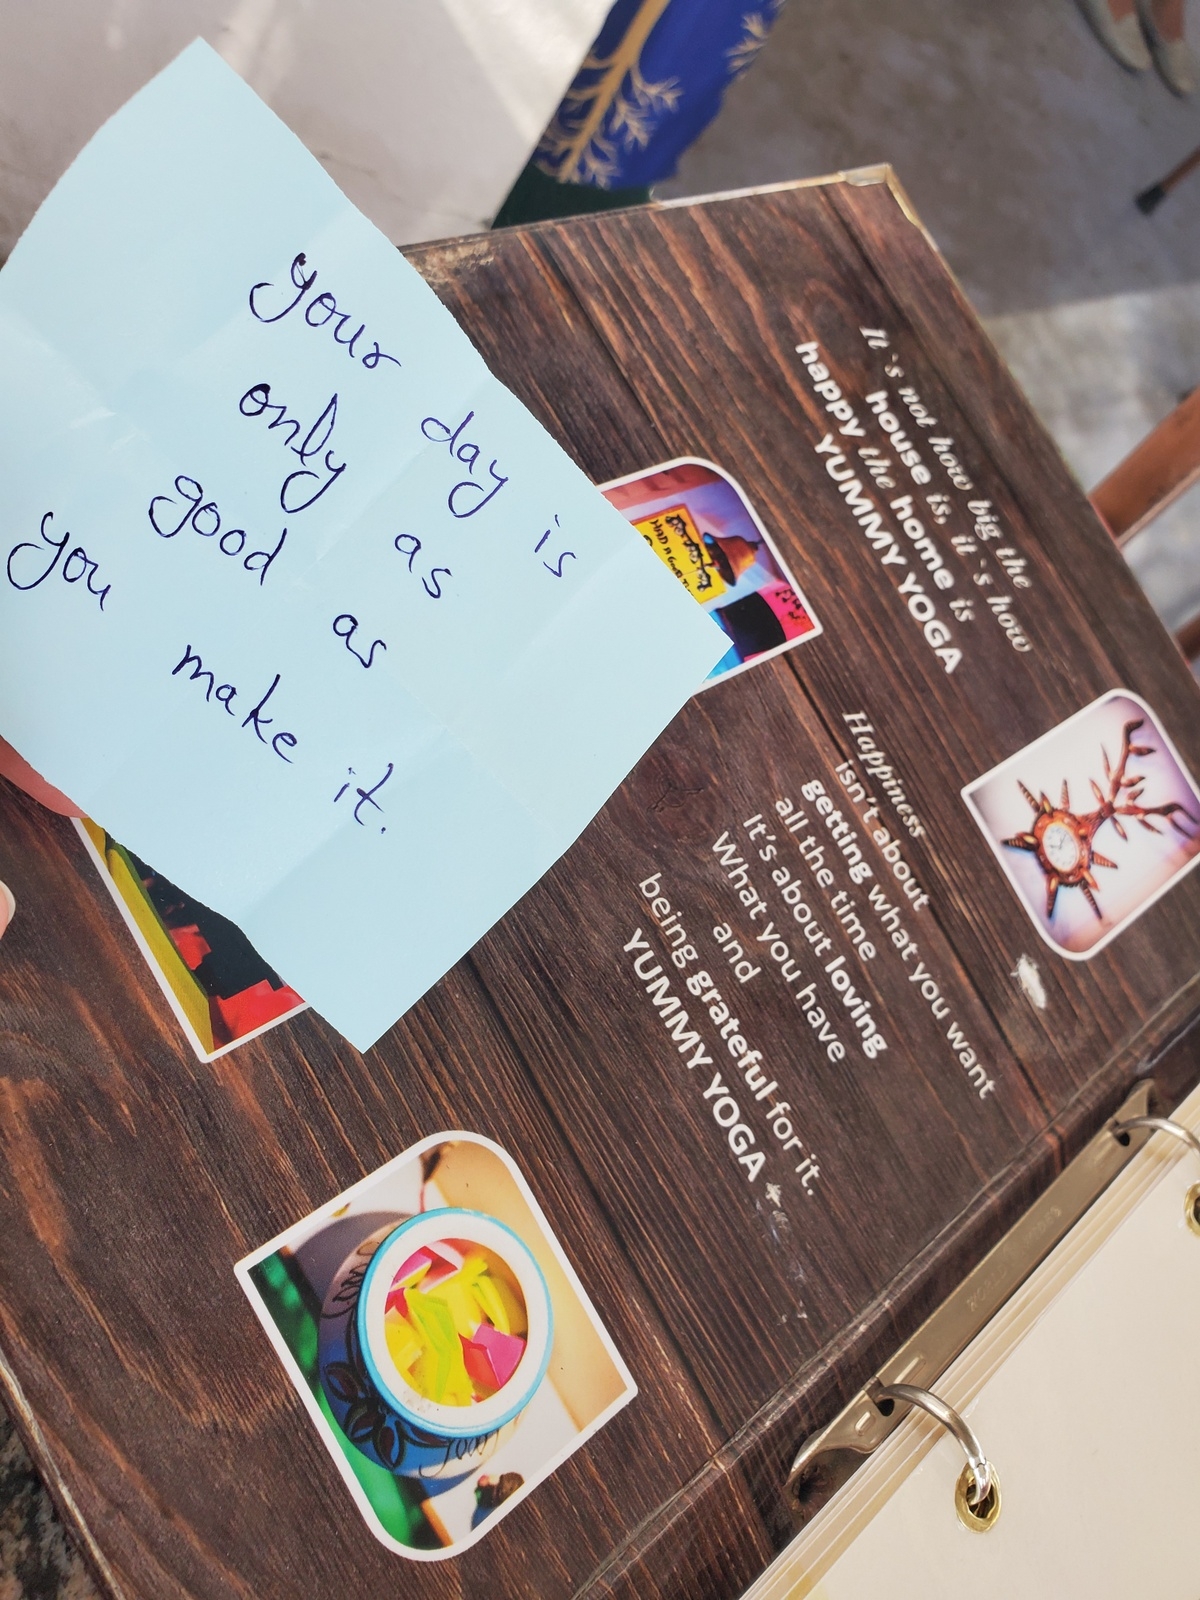 your day is
only as
good as
you make it.
It's not how big the
house is, it's how
happy the home is
YUMMY YOGA
Happiness
isn't about
getting what you want
all the time
It's about loving
What you have
and
being grateful for it.
YUMMY YOGA